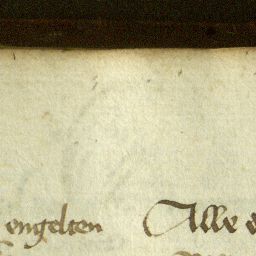 engelten Alle